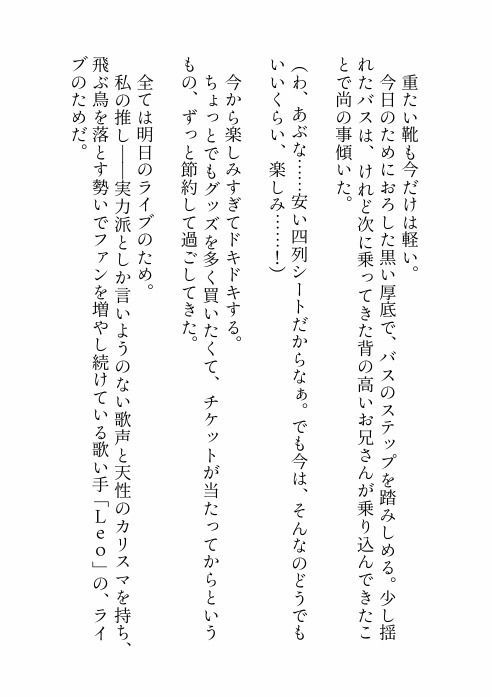 重たい靴も今だけは軽い。
今日のためにおろした黒い厚底で、バスのステップを踏みしめる。少し揺
れたバスは、けれど次に乗ってきた背の高いお兄さんが乗り込んできたこ
とで尚の事傾いた。
(わ、あぶな……安い四列シートだからなぁ。でも今は、そんなのどうでも
いいくらい、楽しみ……！)
今から楽しみすぎてドキドキする。
ちょっとでもグッズを多く買いたくて、チケットが当たってからという
もの、ずっと節約して過ごしてきた。
全ては明日のライブのため。
私の推し――実力派としか言いようのない歌声と天性のカリスマを持ち、
飛ぶ鳥を落とす勢いでファンを増やし続けている歌い手「Leo」の、ライ
ブのためだ。